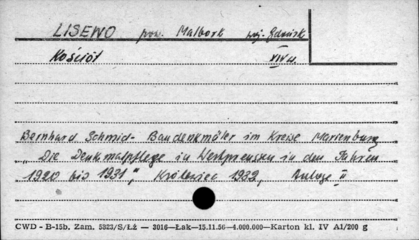 LISEWO pow. Malbork woj. Gdańsk
Kościół XIV w.
Bernhard Schmid - Baudenkmäler im Kreise Marienburg
"Die Denkmalpflege in Westpreussen in den Jahren
1920 bis 1931", Królewiec 1932, Anlage II
CWD - B-15b, Zam. 5823/S/Łż — 3016—Łak—15.11.56—4.000.000—Karton kl. IV A1/200 g